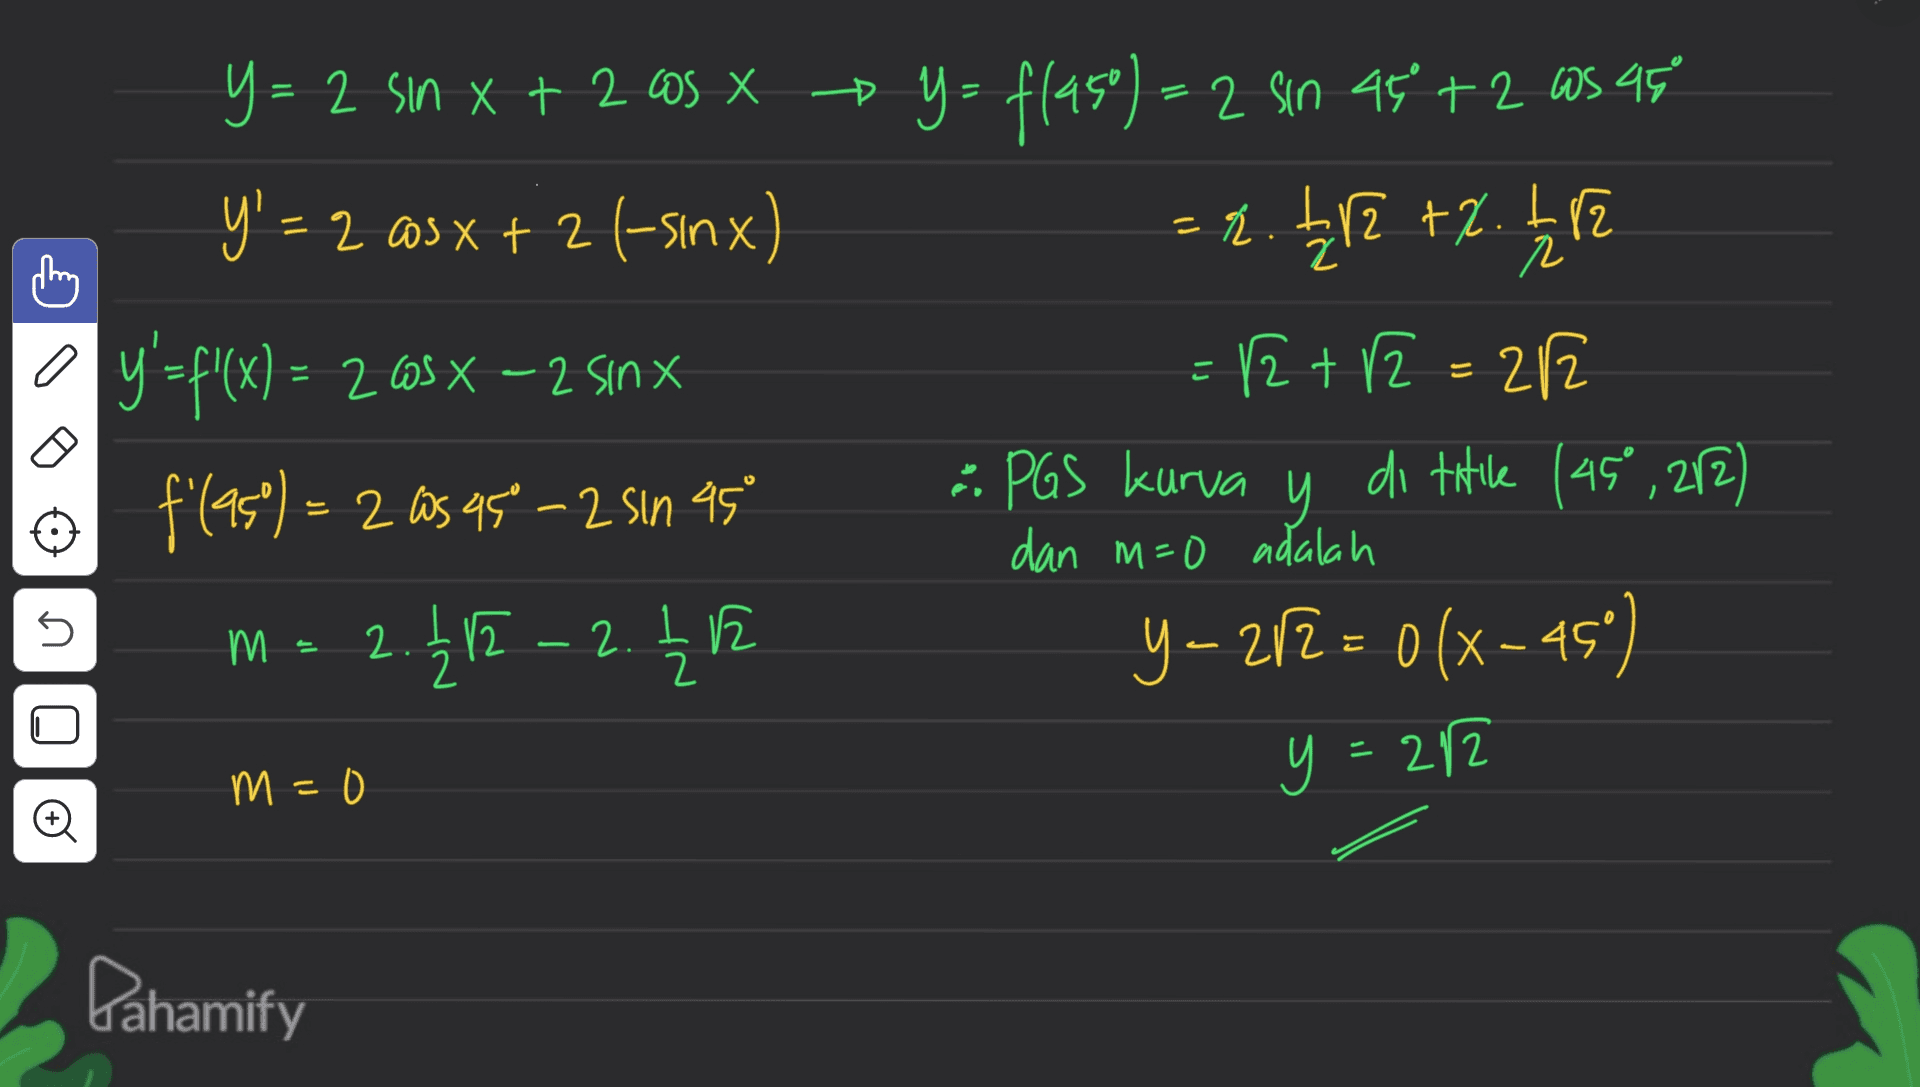 y = 2 sin x + 2 cos x → y = f(45°) = 2 sin 45° + 2 cos 45°
y' = 2 cos x + 2 (-sin x)
= 2 . 1/2 √2 + 2 . 1/2 √2
y' = f'(x) = 2 cos x - 2 sin x
= √2 + √2 = 2√2
f'(45°) = 2 cos 45° - 2 sin 45°
m = 2 . 1/2 √2 - 2 . 1/2 √2
m = 0
∴ PGS kurva y di titik (45°, 2√2)
dan m = 0 adalah
y - 2√2 = 0 (x - 45°)
y = 2√2
Pahamify